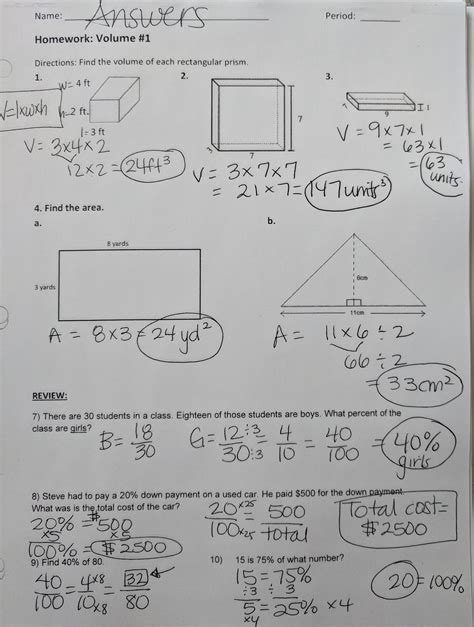 Name: Answers Period:
Homework: Volume #1
Directions: Find the volume of each rectangular prism.
1. 2. 3.
w= 4 ft
V=lxwxh h=2 ft.
l=3 ft
7
7
9
1
V= 3x4x2
12x2=24ft³
V= 3x7x7
= 21x7=147units³
V= 9x7x1
= 63x1
= 63 units
4. Find the area.
a. b.
8 yards
3 yards
6cm
11cm
A = 8x3=24yd²
A = 11x6÷2
66÷2
= 33cm²
REVIEW:
7) There are 30 students in a class. Eighteen of those students are boys. What percent of the
class are girls?
B= 18/30 G= 12÷3/30÷3 = 4/10 = 40/100 = 40% girls
8) Steve had to pay a 20% down payment on a used car. He paid $500 for the down payment.
What was is the total cost of the car?
20% = $500
x5 x5
100% = $2500
20x25/100x25 = 500/total
Total cost=
$2500
9) Find 40% of 80.
40/100 = 4x8/10x8 = 32/80
10) 15 is 75% of what number?
15=75%
÷3 ÷3
5=25% x4
x4
20=100%